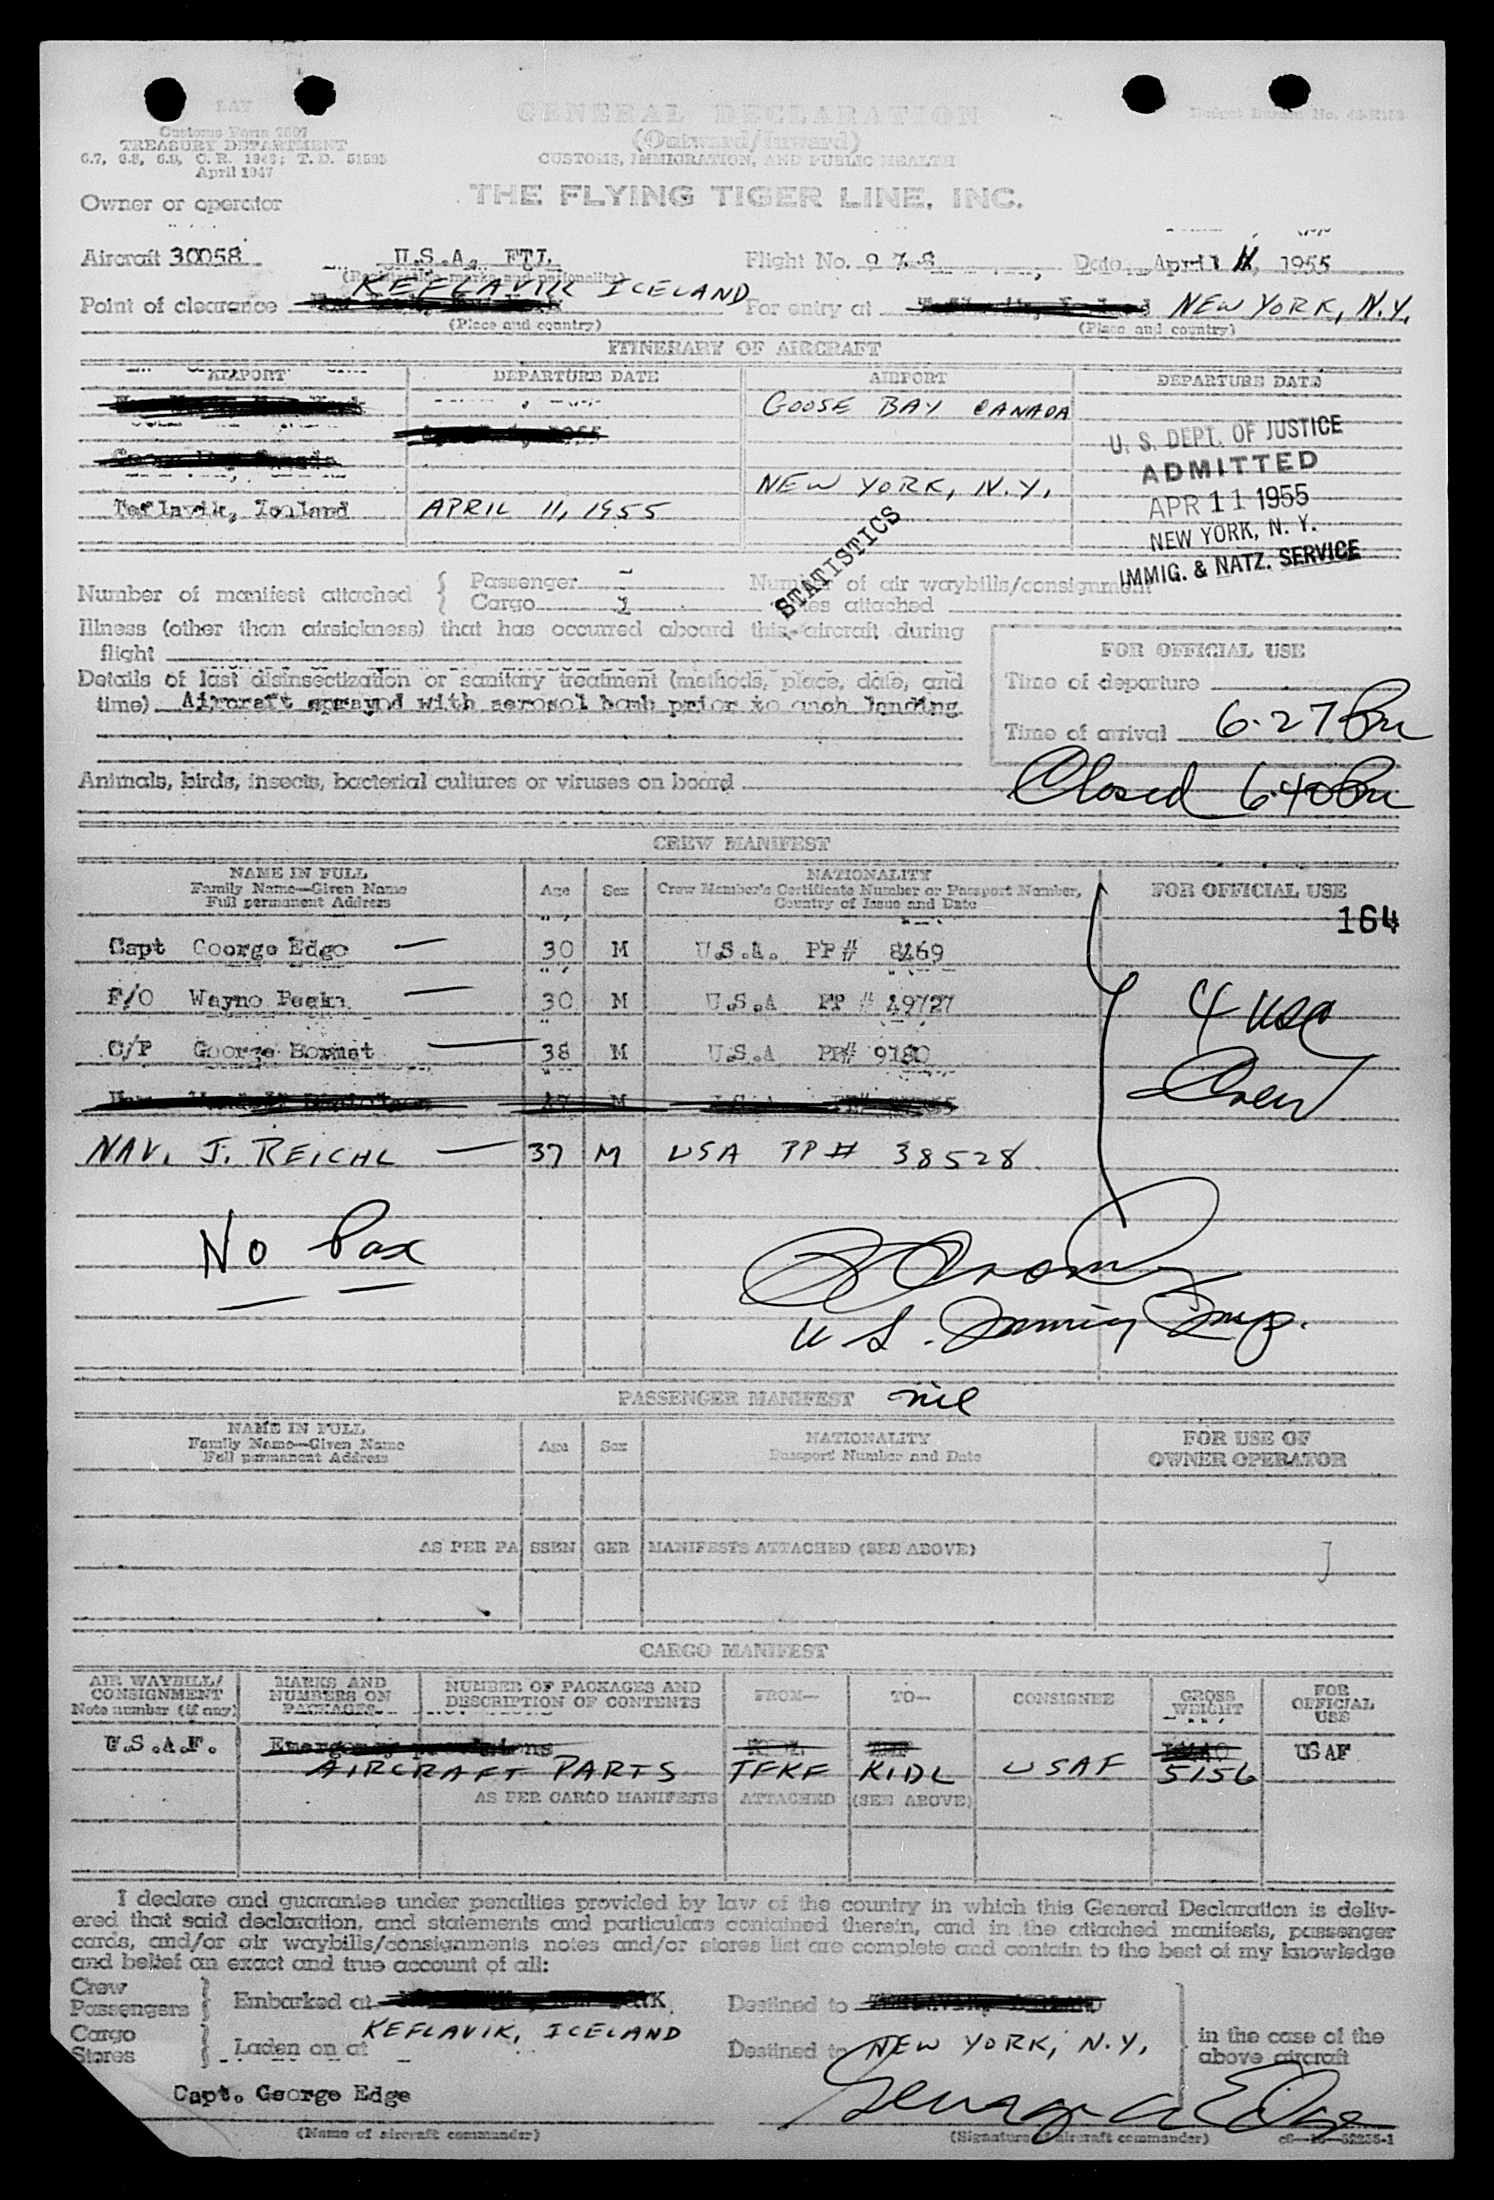 GENERAL DECLARATION
(Outward/Inward)
CUSTOMS, IMMIGRATION, AND PUBLIC HEALTH
Customs Form 7507
TREASURY DEPARTMENT
April 1947
THE FLYING TIGER LINE, INC.
Owner or operator
Aircraft 30058 U.S.A. FTL Flight No. Date April 11, 1955
(Registration marks and nationality)
Point of clearance KEFLAVIK ICELAND For entry at NEW YORK, N.Y.
(Place and country) (Place and country)
ITINERARY OF AIRCRAFT
AIRPORT DEPARTURE DATE AIRPORT DEPARTURE DATE
GOOSE BAY CANADA
U. S. DEPT. OF JUSTICE
ADMITTED
APR 11 1955
NEW YORK, N. Y.
IMMIG. & NATZ. SERVICE
NEW YORK, N.Y.
APRIL 11, 1955
STATISTICS
Number of manifest attached { Passenger - Number of air waybills/consignment
Cargo 1 notes attached
Illness (other than airsickness) that has occurred aboard this aircraft during
flight
Details of last disinsectization or sanitary treatment (methods, place, date, and
time) Aircraft sprayed with aerosol bomb prior to each landing
FOR OFFICIAL USE
Time of departure
Time of arrival 6:27 Pm
Closed 6:40 Pm
Animals, birds, insects, bacterial cultures or viruses on board
CREW MANIFEST
NAME IN FULL
Family Name—Given Name
Full permanent Address
Age Sex
NATIONALITY
Crew Member's Certificate Number or Passport Number,
Country of Issue and Date
FOR OFFICIAL USE
164
Capt George Edge — 30 M U.S.A. PP# 8469
F/O Wayne — 30 M U.S.A PP # 49727
C/P George — 38 M U.S.A PP# 9180
NAV. J. REICHL — 37 M USA PP# 38528
4 USC
Crew
No Pax
U.S. Immig Insp.
PASSENGER MANIFEST nil
NAME IN FULL
Family Name—Given Name
Full permanent Address
Age Sex
NATIONALITY
Passport Number and Date
FOR USE OF
OWNER OPERATOR
AS PER PASSENGER MANIFESTS ATTACHED (SEE ABOVE)
CARGO MANIFEST
AIR WAYBILL/
CONSIGNMENT
Note number (if any)
MARKS AND
NUMBERS ON
PACKAGES
NUMBER OF PACKAGES AND
DESCRIPTION OF CONTENTS
FROM— TO— CONSIGNEE
GROSS
WEIGHT
FOR
OFFICIAL
USE
U.S.A.F. USAF
AIRCRAFT PARTS TFKF KIDL USAF 5156
AS PER CARGO MANIFESTS ATTACHED (SEE ABOVE)
I declare and guarantee under penalties provided by law of the country in which this General Declaration is deliv-
ered that said declaration, and statements and particulars contained therein, and in the attached manifests, passenger
cards, and/or air waybills/consignments notes and/or stores list are complete and contain to the best of my knowledge
and belief an exact and true account of all:
Crew
Passengers } Embarked at Destined to
Cargo
Stores } Laden on at KEFLAVIK, ICELAND Destined to NEW YORK, N.Y.
in the case of the
above aircraft
Capt. George Edge George A Edge
(Name of aircraft commander) (Signature of aircraft commander)